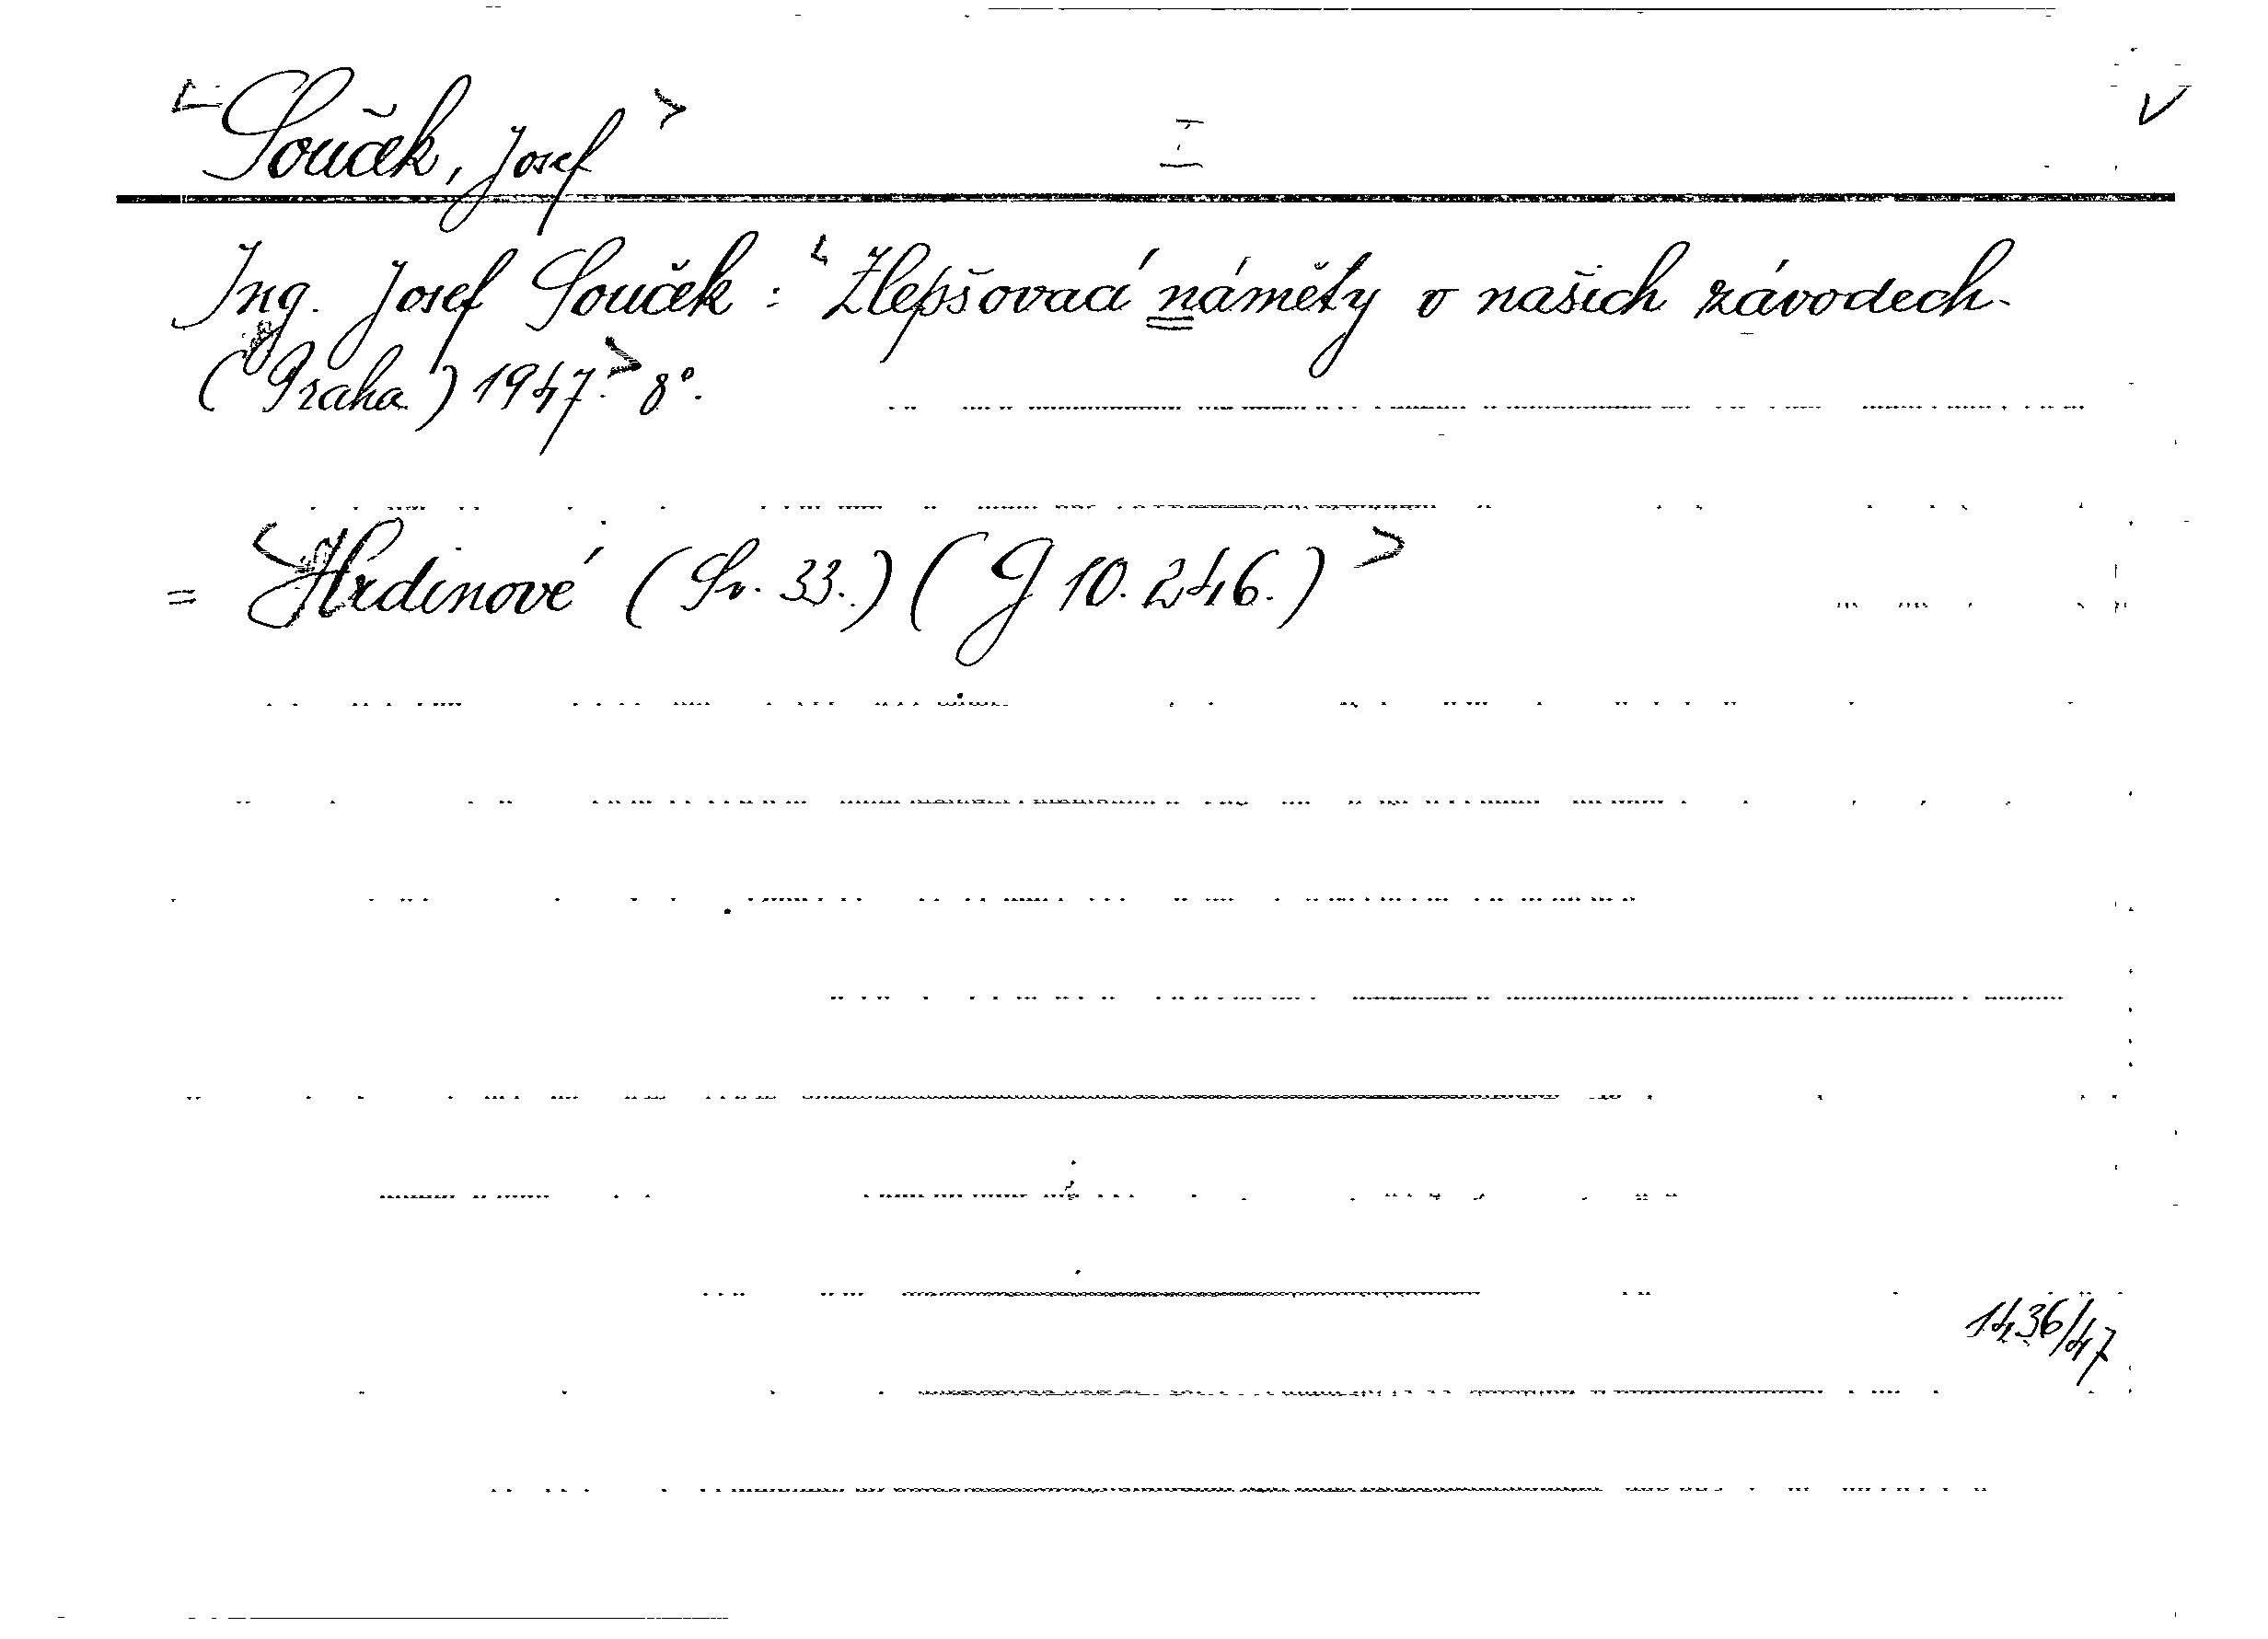 Souček, Josef
Ing. Josef Souček: Zlepšovací náměty v našich závodech.
(Praha) 1947. 8°.
= Hrdinové (Sv. 33.) (G 10.246.)
1436/47